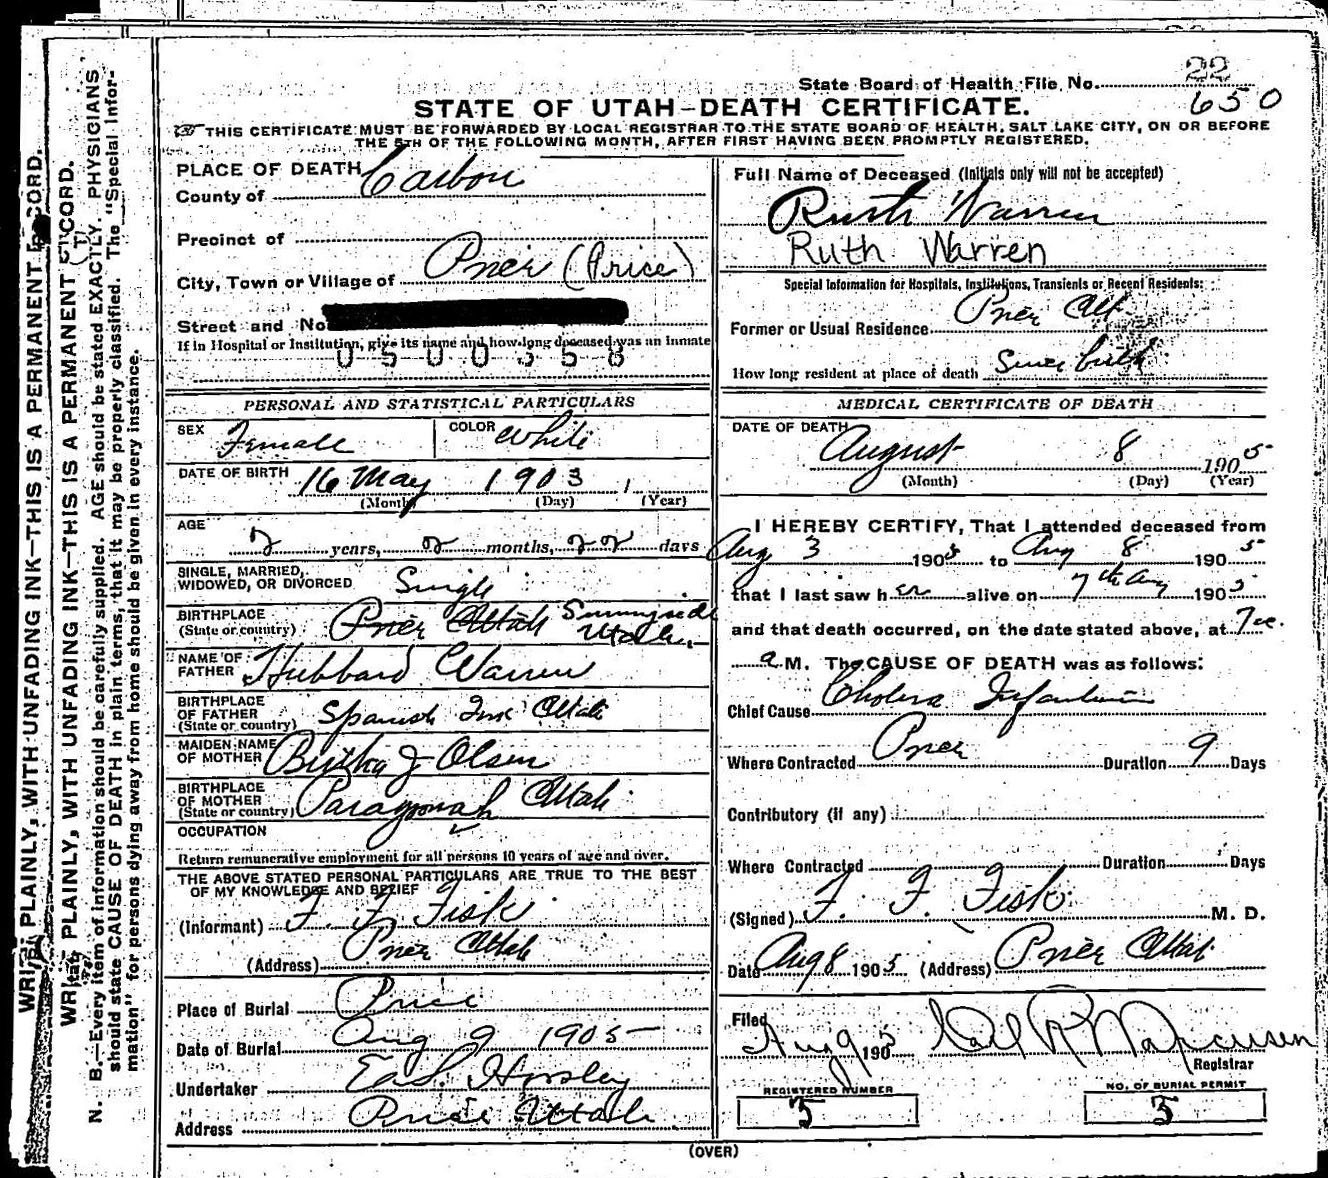 State Board of Health File No. 22
650
STATE OF UTAH—DEATH CERTIFICATE.
THIS CERTIFICATE MUST BE FORWARDED BY LOCAL REGISTRAR TO THE STATE BOARD OF HEALTH, SALT LAKE CITY, ON OR BEFORE
THE 5TH OF THE FOLLOWING MONTH, AFTER FIRST HAVING BEEN PROMPTLY REGISTERED.
PLACE OF DEATH
County of Carbon
Precinct of
City, Town or Village of Price (Price)
Street and No
If in Hospital or Institution, give its name and how long deceased was an inmate
0500358
PERSONAL AND STATISTICAL PARTICULARS
SEX Female COLOR White
DATE OF BIRTH 16 May 1903
(Month) (Day) (Year)
AGE
2 years, 2 months, 22 days
SINGLE, MARRIED,
WIDOWED, OR DIVORCED Single
BIRTHPLACE
(State or country) Price Utah Sunnyside
Utah
NAME OF
FATHER Hubbard Warren
BIRTHPLACE
OF FATHER
(State or country) Spanish Fork Utah
MAIDEN NAME
OF MOTHER Bertha J Olsen
BIRTHPLACE
OF MOTHER
(State or country) Paragoonah Utah
OCCUPATION
Return remunerative employment for all persons 10 years of age and over.
THE ABOVE STATED PERSONAL PARTICULARS ARE TRUE TO THE BEST
OF MY KNOWLEDGE AND BELIEF
(Informant) F. F. Fisk
(Address) Price Utah
Place of Burial Price
Date of Burial Aug 9 1905
Undertaker Horsley
Address Price Utah
Full Name of Deceased (Initials only will not be accepted)
Ruth Warren
Ruth Warren
Special Information for Hospitals, Institutions, Transients or Recent Residents:
Former or Usual Residence Price Ut
How long resident at place of death Since birth
MEDICAL CERTIFICATE OF DEATH
DATE OF DEATH
August 8 1905
(Month) (Day) (Year)
I HEREBY CERTIFY, That I attended deceased from
Aug 3 1905 to Aug 8 1905
that I last saw her alive on 7th Aug 1905
and that death occurred, on the date stated above, at 7
a M. The CAUSE OF DEATH was as follows:
Chief Cause Cholera Infantum
Where Contracted Price Duration 9 Days
Contributory (if any)
Where Contracted Duration Days
(Signed) F. F. Fisk M. D.
Date Aug 8 1905 (Address) Price Utah
Filed
Aug 9 1905 Carl R Marcusen
Registrar
REGISTERED NUMBER
5
NO. OF BURIAL PERMIT
5
(OVER)
WRITE PLAINLY, WITH UNFADING INK—THIS IS A PERMANENT RECORD.
PLAINLY, WITH UNFADING INK—THIS IS A PERMANENT RECORD.
N. B.—Every item of information should be carefully supplied. AGE should be stated EXACTLY. PHYSICIANS
should state CAUSE OF DEATH in plain terms, that it may be properly classified. The "Special Infor-
mation" for persons dying away from home should be given in every instance.